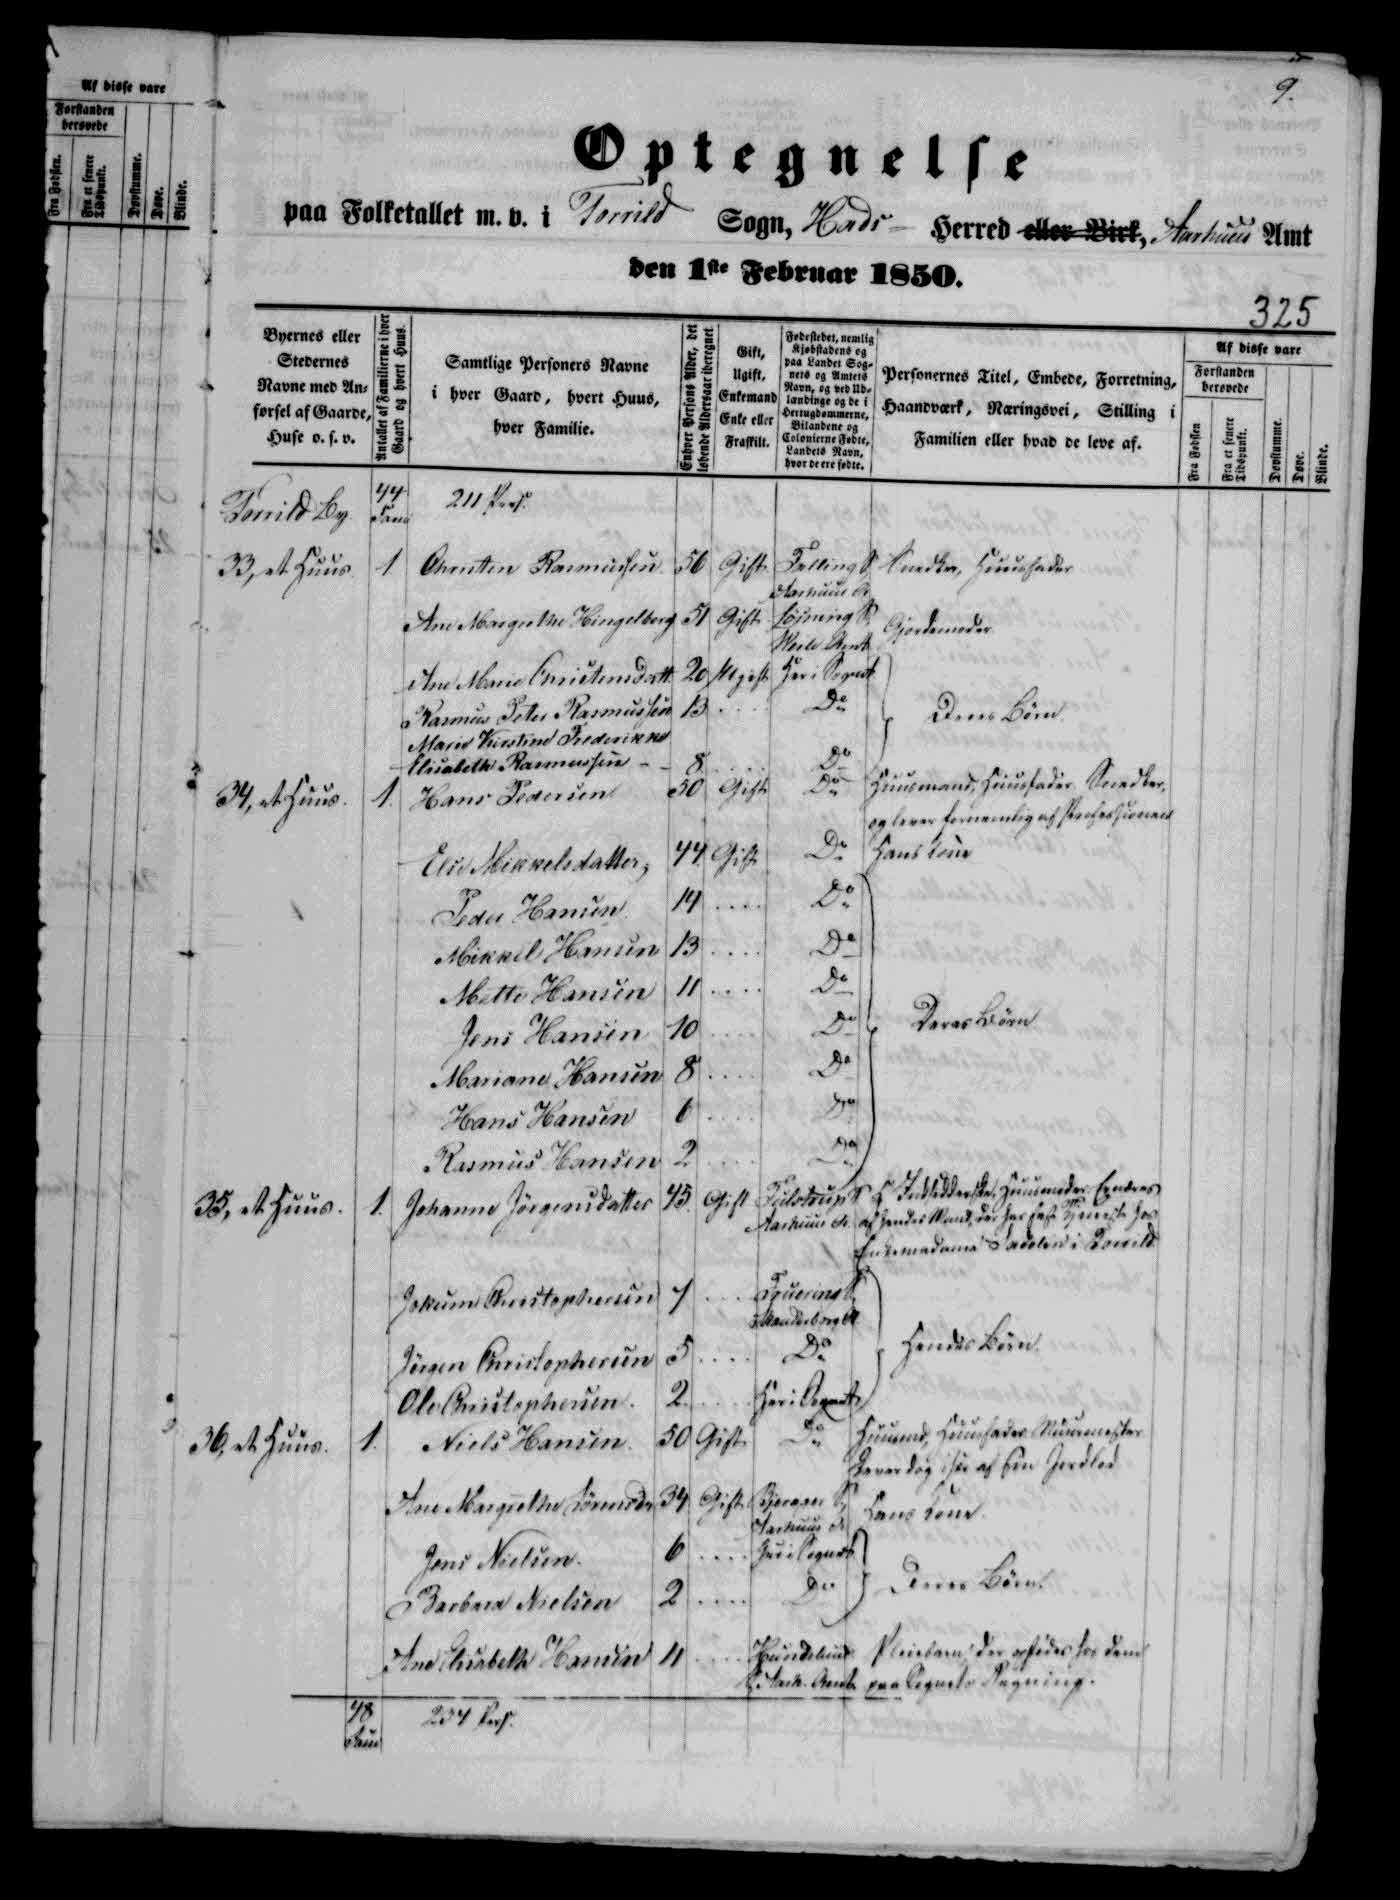 Af disse vare
Forstanden
berøvede
Fra Fødslen.
Fra et senere Tidspunkt.
Døvstumme.
Døve.
Blinde.
9.
Optegnelse
paa Folketallet m. v. i Torrild Sogn, Hads Herred eller Birk, Aarhuus Amt
den 1ste Februar 1850.
325
Byernes eller
Stedernes
Navne med An-
førsel af Gaarde,
Huse o. s. v.
Antallet af Familierne i hver
Gaard og hvert Huus.
Samtlige Personers Navne
i hver Gaard, hvert Huus,
hver Familie.
Enhver Persons Alder, det
løbende Aldersaar iberegnet
Gift,
Ugift,
Enkemand
Enke eller
Fraskilt.
Fødestedet, nemlig
Kjøbstadens og
paa Landet Sog-
nets og Amtets
Navn, og ved Ud-
lændinge og de i
Hertugdømmerne,
Bilandene og
Colonierne Fødte,
Landets Navn,
hvor de ere fødte.
Personernes Titel, Embede, Forretning,
Haandværk, Næringsvei, Stilling i
Familien eller hvad de leve af.
Af disse vare
Forstanden
berøvede
Fra Fødslen
Fra et senere Tidspunkt.
Døvstumme.
Døve.
Blinde.
Torrild By 44 Fam 211 Pers.
33, et Huus. 1 Christen Rasmussen 56 Gift Falling S. Snedker, Huusfader
Aarhuus A.
Ane Margrethe Hingelberg 51 Gift Løsning S. Gjordemoder
Veile Amt
Ane Marie Christensdatt 20 Ugift Her i Sognet
Rasmus Peter Rasmussen 13 .... Do Deres Børn
Marie Kirstine Frederikke
Elisabeth Rasmussen - - 8 .... Do
34, et Huus. 1. Hans Pedersen 50 Gift Do Huusmand, Huusfader Snedker,
og lever fornemlig af Professionen
Else Mikkelsdatter, 44 Gift Do Hans Kone
Peder Hansen. 14 .... Do
Mikkel Hansen 13 .... Do
Mette Hansen 11 .... Do
Jens Hansen 10 .... Do Deres Børn
Mariane Hansen 8 .... Do
Hans Hansen 6 .... Do
Rasmus Hansen 2 .... Do
35, et Huus. 1. Johanne Jörgensdatter 45. Gift S Insidderske, Huusmoder Ernæres
Aarhuus A. af hendes Mand, der har fast Tjeneste hos
Enkemadame i Torrild
Jokum Christophersen 7 .... Fruering S.
Skanderborg A
Jörgen Christophersen 5 .... Do Hendes Børn.
Ole Christophersen. 2 .... Her i Sognet
36, et Huus. 1. Niels Hansen. 50 Gift Do Huusmd, Huusfader Muurmester
Lever dog især af sin Jordlod
Ane Margrethe Sörensdr 34 Gift Bjerager S. Hans Kone.
Aarhuus A
Jens Nielsen. 6 .... Her i Sognet
Barbara Nielsen 2 .... Do Deres Børn.
Ane Elisabeth Hansen 11 .... Hundslund Pleiebarn der opfødes hos dem
S. Aarh. Amt paa Sognets Regning.
48 Fam 234 Pers.